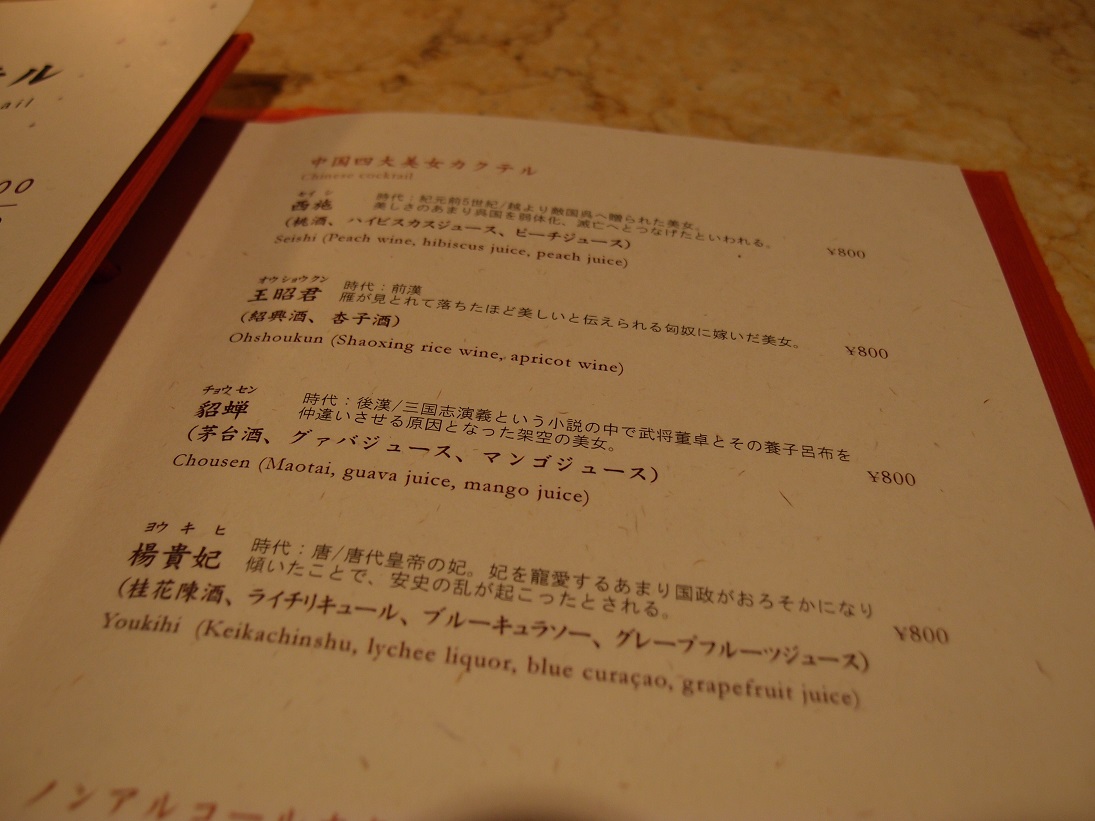 テル
ail
00
中国四大美女カクテル
Chinese cocktail
セイ シ
西施
時代：紀元前5世紀/越より敵国呉へ贈られた美女。
美しさのあまり呉国を弱体化、滅亡へとつなげたといわれる。
(桃酒、ハイビスカスジュース、ピーチジュース)
¥800
Seishi (Peach wine, hibiscus juice, peach juice)
オウ ショウ クン
王昭君
時代：前漢
雁が見とれて落ちたほど美しいと伝えられる匈奴に嫁いだ美女。
(紹興酒、杏子酒)
¥800
Ohshoukun (Shaoxing rice wine, apricot wine)
チョウ セン
貂蝉
時代：後漢/三国志演義という小説の中で武将董卓とその養子呂布を
仲違いさせる原因となった架空の美女。
(茅台酒、グァバジュース、マンゴジュース)
¥800
Chousen (Maotai, guava juice, mango juice)
ヨウ キ ヒ
楊貴妃
時代：唐/唐代皇帝の妃。妃を寵愛するあまり国政がおろそかになり
傾いたことで、安史の乱が起こったとされる。
(桂花陳酒、ライチリキュール、ブルーキュラソー、グレープフルーツジュース)
¥800
Youkihi (Keikachinshu, lychee liquor, blue curaçao, grapefruit juice)
ノンアルコール